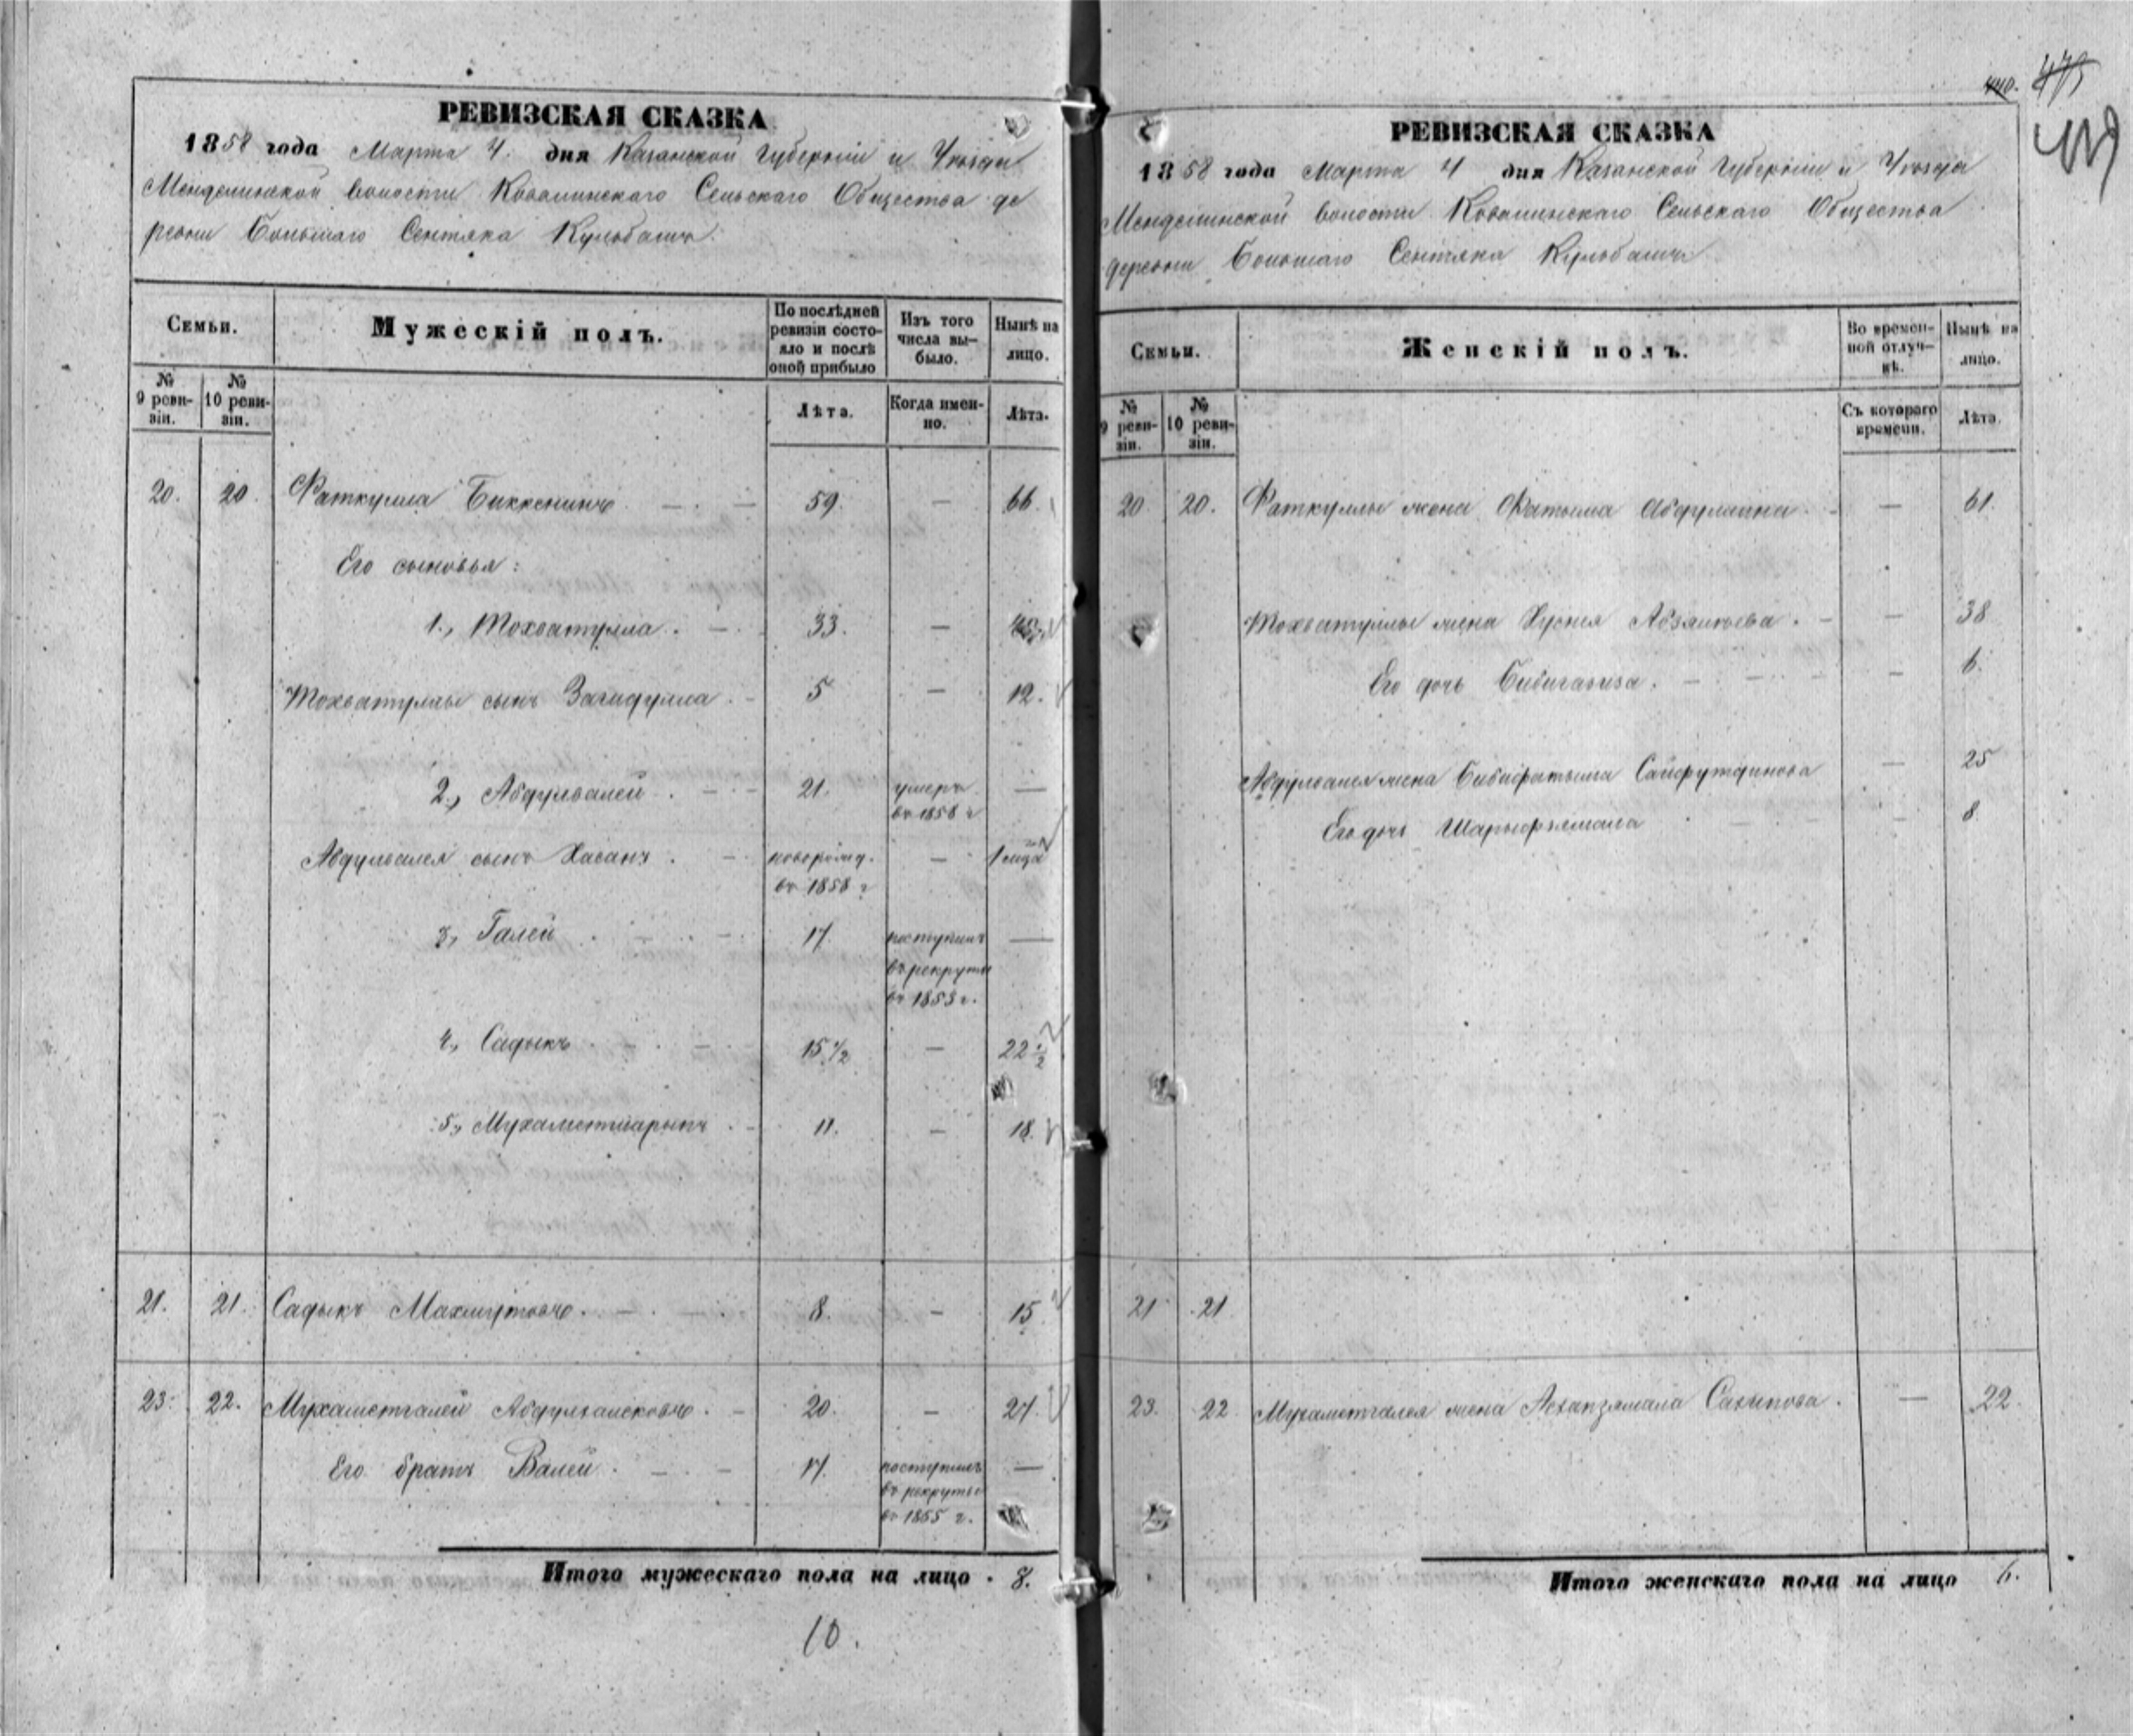 РЕВИЗСКАЯ СКАЗКА
1858 года Марта 4. дня Казанской Губернии и Уѣзда
Менделинской волости Ковалинскаго Сельскаго Общества де
ревни Большаго Сентяка Кульбашъ.
Семьи.
Мужескій полъ.
По послѣдней ревизіи состояло и послѣ оной прибыло
Изъ того числа выбыло.
Нынѣ на лицо.
№ 9 ревизіи.
№ 10 ревизіи.
Лѣта.
Когда именно.
Лѣта.
20. 20. Фаткулла Биккенинъ 59. — 66.
Его сыновья:
1., Мохватулла. 33. —
Мохватуллы сынъ Загидулла 5 — 12.
2., Абдулвалей. 21. умеръ въ 1858 г —
Абдулвалея сынъ Хасанъ. новорожд. въ 1858 г —
3., Галей 17. поступилъ въ рекруты въ 1853 г. —
4., Садыкъ 15 1/2 — 22 1/2
5., Мухаметшарыпъ 11. — 18.
21. 21. Садыкъ Махмутовъ. 8. — 15
23. 22. Мухаметгалей Абдулханековъ. 20. — 27.
Его братъ Валей. 17. поступилъ въ рекруты въ 1855 г. —
Итого мужескаго пола на лицо. 8.
10.
440. 479
РЕВИЗСКАЯ СКАЗКА
1858 года Марта 4 дня Казанской Губерніи и Уѣзда
Менделинской волости Ковалинскаго Сельскаго Общества
деревни Большаго Сентяка Кульбашъ
Семьи.
Женскій полъ.
Во временной отлучкѣ.
Нынѣ на лицо.
№ 9 ревизіи.
№ 10 ревизіи.
Съ котораго времени.
Лѣта.
20 20. Фаткуллы жена Фатыма Абдулаина — 61.
Мохватуллы жена Хусня Абзялиева. — 38
Его дочь Бибигазиза. — 6.
Абдулвалея жена Бибифатыма Сайфутдинова — 25
Его дочь Шарыфзямала — 8
21 21
23. 22 Мухаметгалея жена Асхапзямала Сагитова. — 22.
Итого женскаго пола на лицо 6.